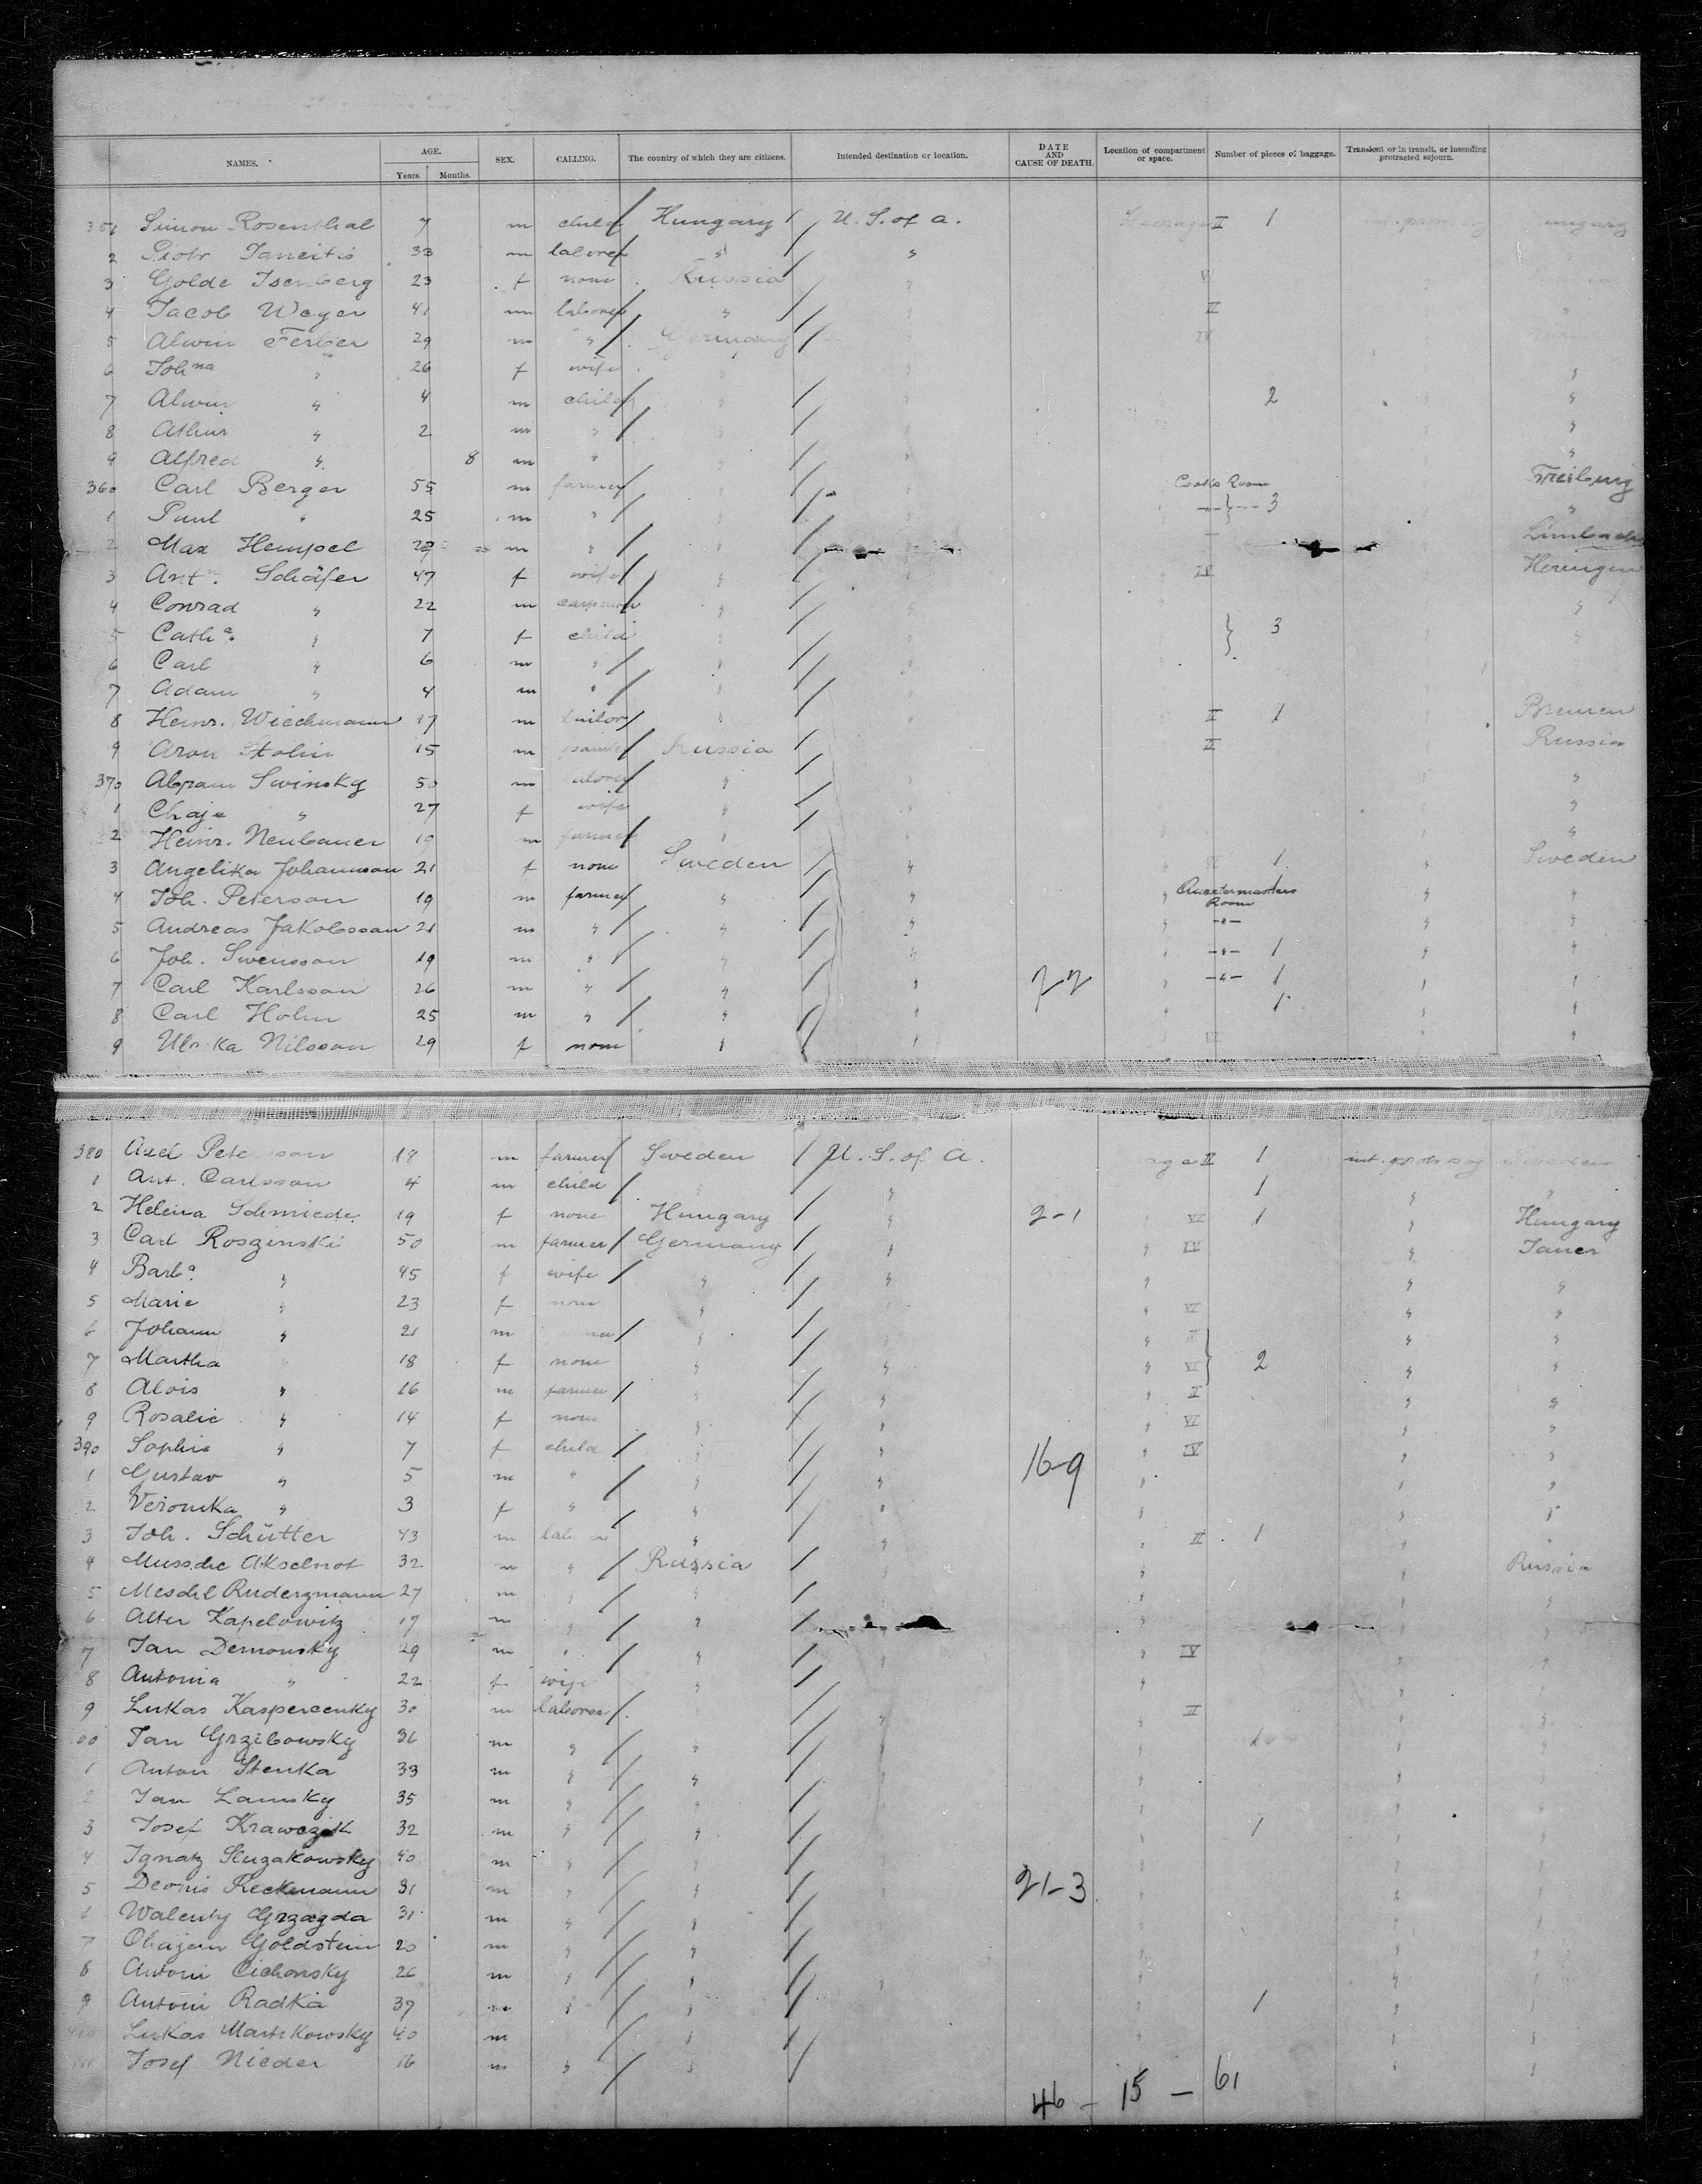 NAMES. AGE. Years. Months. SEX. CALLING. The country of which they are citizens. Intended destination or location. DATE AND CAUSE OF DEATH. Location of compartment or space. Number of pieces of baggage. Transient or in transit, or intending protracted sojourn.
351 Simon Rosenthal 7 m child Hungary U. S. of A. Steerage II 1
2 Piotr 33 m laborer " "
3 Golde Isenberg 23 f none Russia "
4 Jacob Weger 41 m laborer " " II "
5 Alwin Ferber 29 m " Germany IV
6 Joh na " 26 f wife "
7 Alwin " 4 m child " " 2 "
8 Athur " 2 m " " "
9 Alfred " 8 m " "
360 Carl Berger 55 m farmer " Cooks Room Freiburg
1 Paul " 25 m " " -"- 3 "
2 Max Hempel 29 m " " Limbach
3 Ant. Schäfer 47 f wife " IV Heringen
4 Conrad " 22 m " " "
5 Cath a. " 7 f child " 3 "
6 Carl " 6 m " "
7 Adam " 4 m " "
8 Heinr. Wiechmann 17 m tailor " II 1 Bremen
9 Aron Stolin 15 m Russia II Russia
370 Abram Swinsky 50 m laborer " "
1 Chaje " 27 f wife " "
2 Heinr. Neubauer 19 m farmer " "
3 Angelika Johannson 21 f none Sweden " 1 " Sweden
4 Joh. Peterson 19 m farmer " " " Quartermasters Room 1 " "
5 Andreas Jakobsson 21 m " " " " -"- " "
6 Joh. Swensson 19 m " " " -"- 1 " "
7 Carl Karlsson 26 m " " " " -"- 1 " "
8 Carl Holm 25 m " " " " 1 " "
9 Ulrika Nilsson 29 f none " " VI " "
380 Axel Peterson 18 m farmer Sweden U. S. of A. II 1 Sweden
1 Ant. Carlsson 4 m child " 1 " "
2 Helena Schmiede 19 f none Hungary " 2-1 VI 1 " Hungary
3 Carl Roszinski 50 m farmer Germany " " IV " Jauer
4 Barb a. " 45 f wife " " " " "
5 Marie " 23 f none " " VI " "
6 Johann " 21 m " " II " "
7 Martha " 18 f none " " " VI 2 " "
8 Alois " 16 m farmer " " " II " "
9 Rosalie " 14 f none " " " VI " "
390 Sophie " 7 f child " " 16-9 " IV " "
1 Gustav " 5 m " " " " " "
2 Veronika " 3 f " " " " " "
3 Joh. Schütter 43 m laborer " " " II 1 " "
4 32 m " Russia " " " Russia
5 27 m " " " " "
6 Alter Kapelowitz 17 m " " " " "
7 Jan Demonsky 29 m " " " " IV " "
8 Antonia " 22 f wife " " " "
9 Lukas Kaspercenky 30 m laborer " II " "
400 Jan Grzibowsky 36 m " " " " "
1 Anton Stenka 33 m " " " "
2 Jan Lamsky 35 m " " " "
3 Josef Krawczik 32 m " " " 1 " "
4 Ignatz 40 m " " " " "
5 Deonis Reckmann 31 m " " 21-3 " "
6 Walenty Grzegda 31 m " " " "
7 Goldstein 20 m " " " "
8 Antoni Cichonsky 26 m " " " " "
9 Antoni Radka 37 m " " " 1 " "
410 Lukas Martikowsky 40 m " " " "
411 Josef Nieder 16 m " " " "
46 - 15 - 61